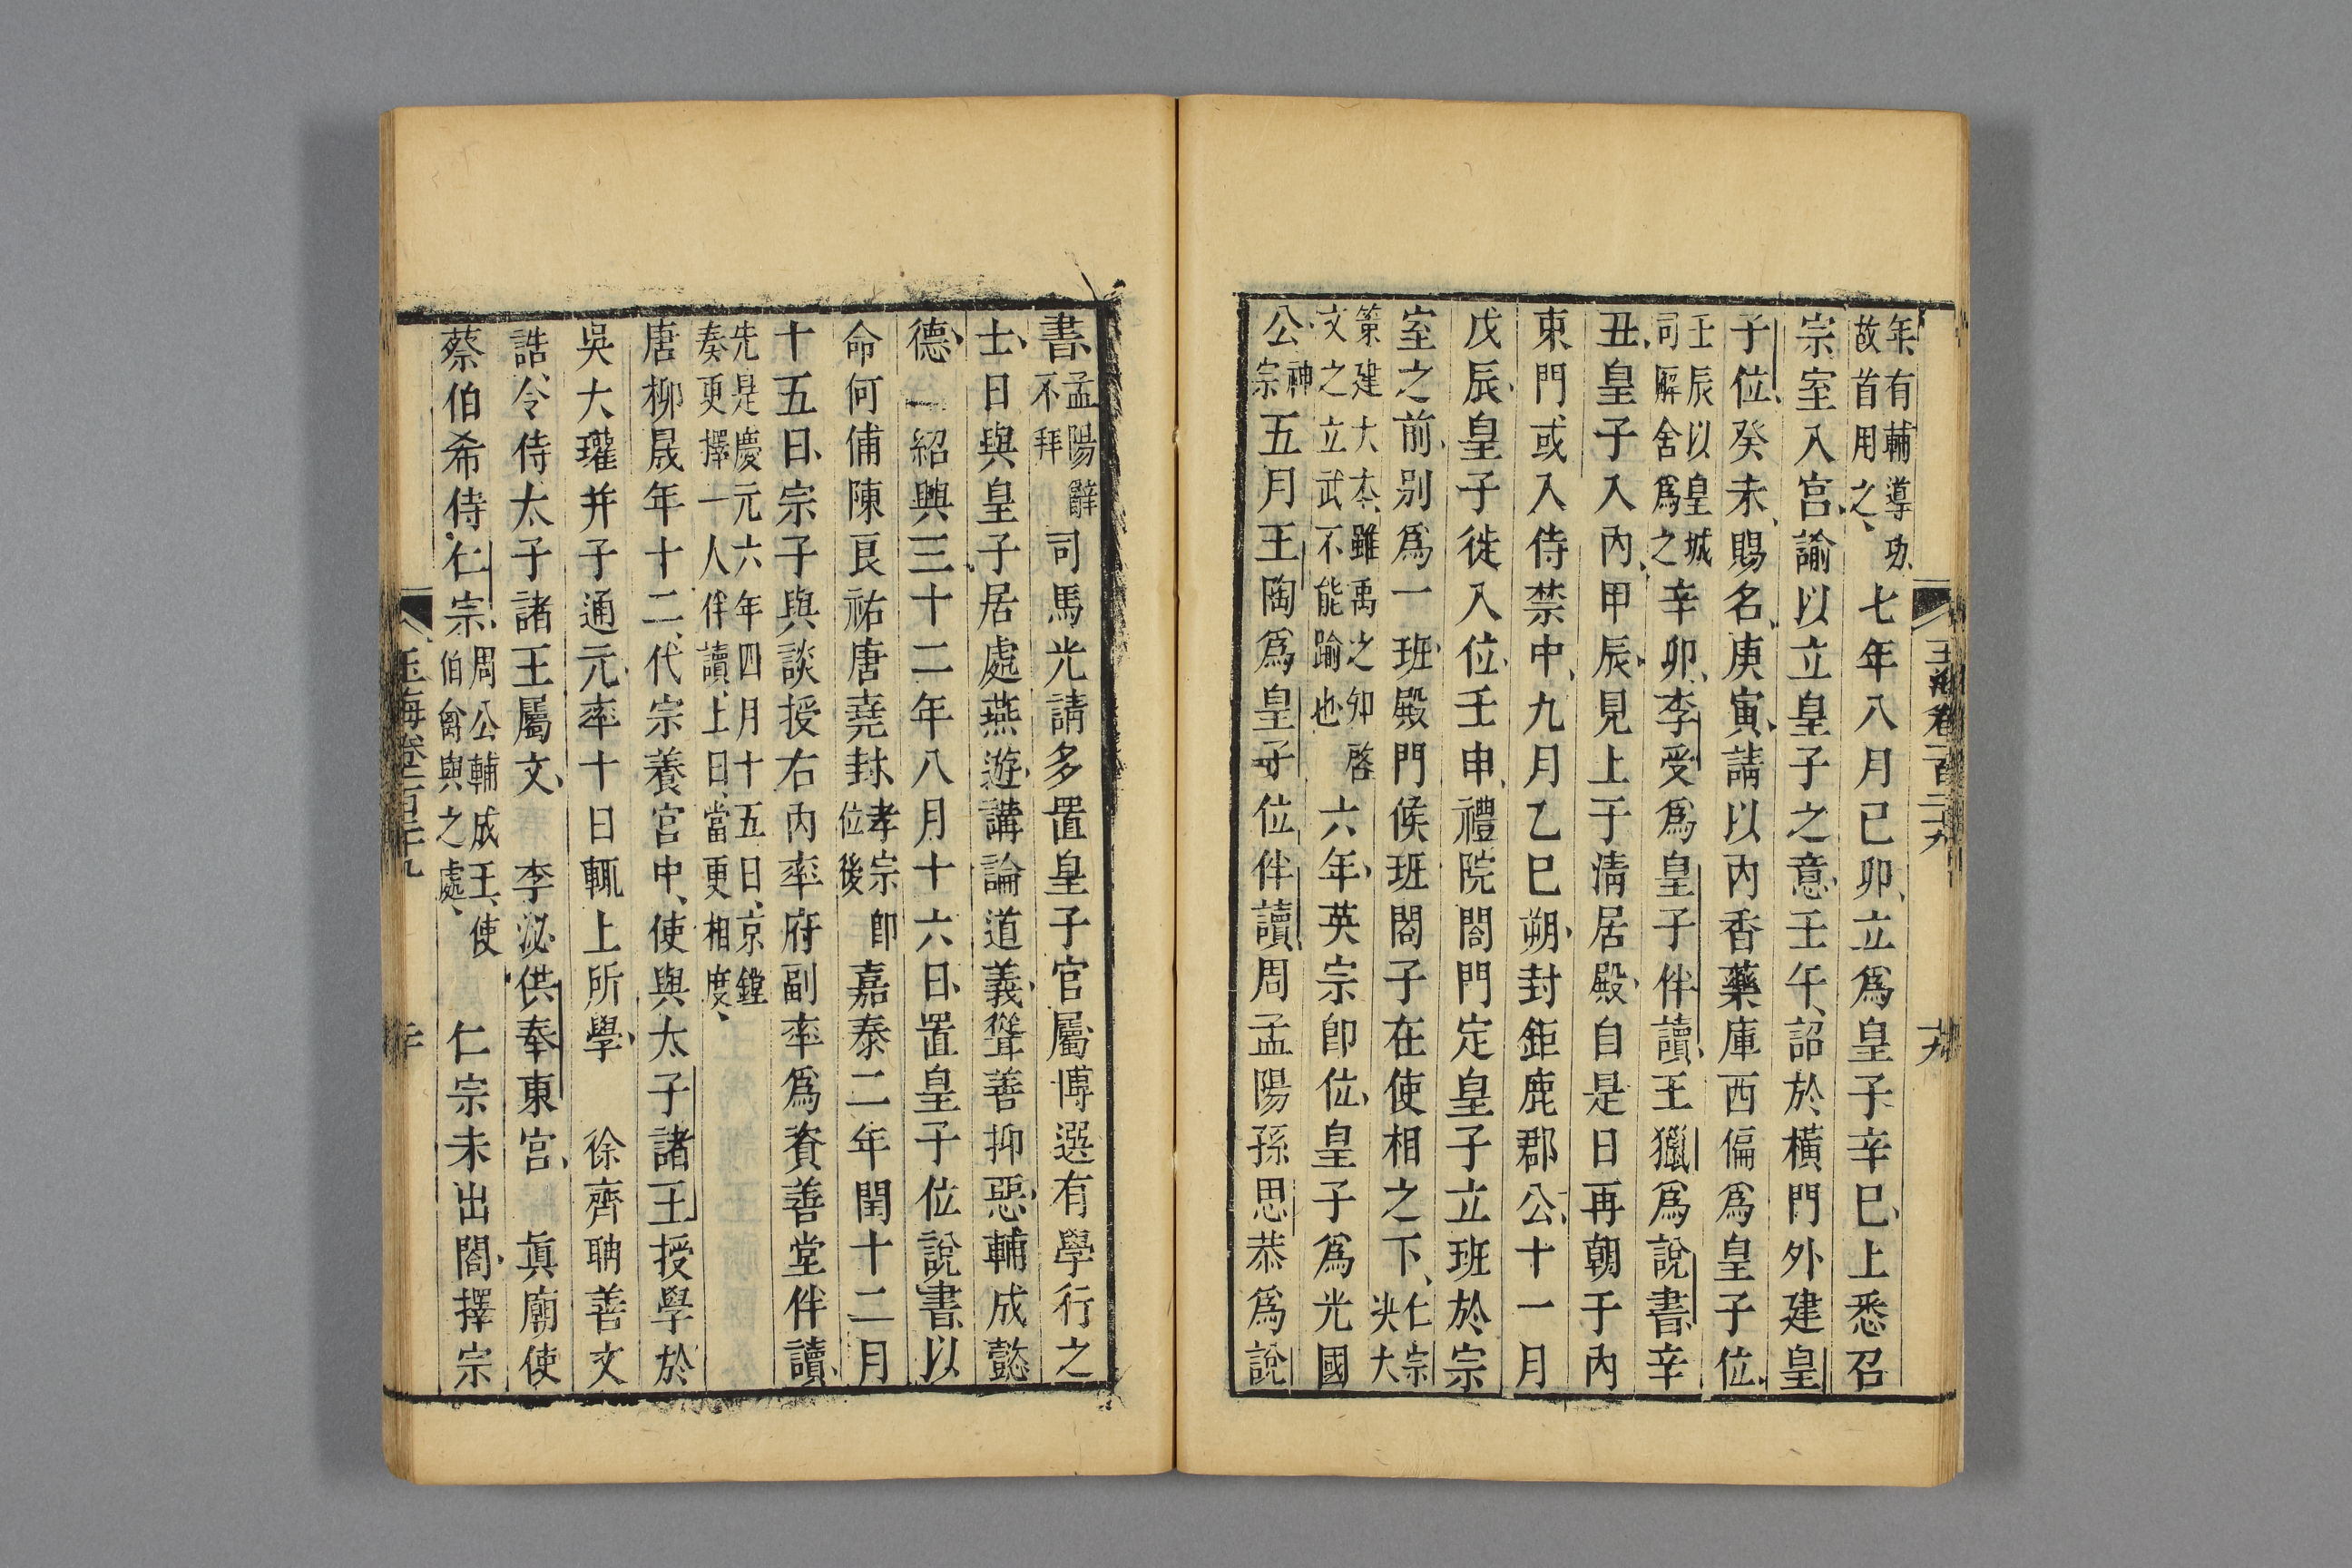 玉海卷一百二十九
十九
年有輔導功故首用之七年八月己卯立爲皇子辛巳上悉召
宗室入宮諭以立皇子之意壬午詔於橫門外建皇
子位癸未賜名庚寅請以內香藥庫西偏爲皇子位
壬辰以皇城司廨舍爲之辛卯李受爲皇子伴讀王獵爲說書辛
丑皇子入內甲辰見上于清居殿自是日再朝于內
東門或入侍禁中九月乙巳朔封鉅鹿郡公十一月
戊辰皇子徙入位壬申禮院閤門定皇子立班於宗
室之前別爲一班殿門候班閤子在使相之下仁宗决大
策建大本雖禹之知啓文之立武不能踰也六年英宗卽位皇子爲光國
公神宗五月王陶爲皇子位伴讀周孟陽孫思恭爲說
書孟陽辭不拜司馬光請多置皇子官屬博選有學行之
士日與皇子居處燕遊講論道義聳善抑惡輔成懿
德一紹興三十二年八月十六日置皇子位說書以
命何俌陳良祐唐堯封孝宗卽位後嘉泰二年閏十二月
十五日宗子與談授右內率府副率爲資善堂伴讀
先是慶元六年四月十五日京鏜奏更擇一人伴讀上日當更相度
唐柳晟年十二代宗養宮中使與太子諸王授學於
吳大瓘幷子通元率十日輒上所學 徐齊聃善文
誥令侍太子諸王屬文 李泌供奉東宮 眞廟使
蔡伯希侍仁宗周公輔成王使伯禽與之處 仁宗未出閤擇宗
玉海卷一百二十九
二十